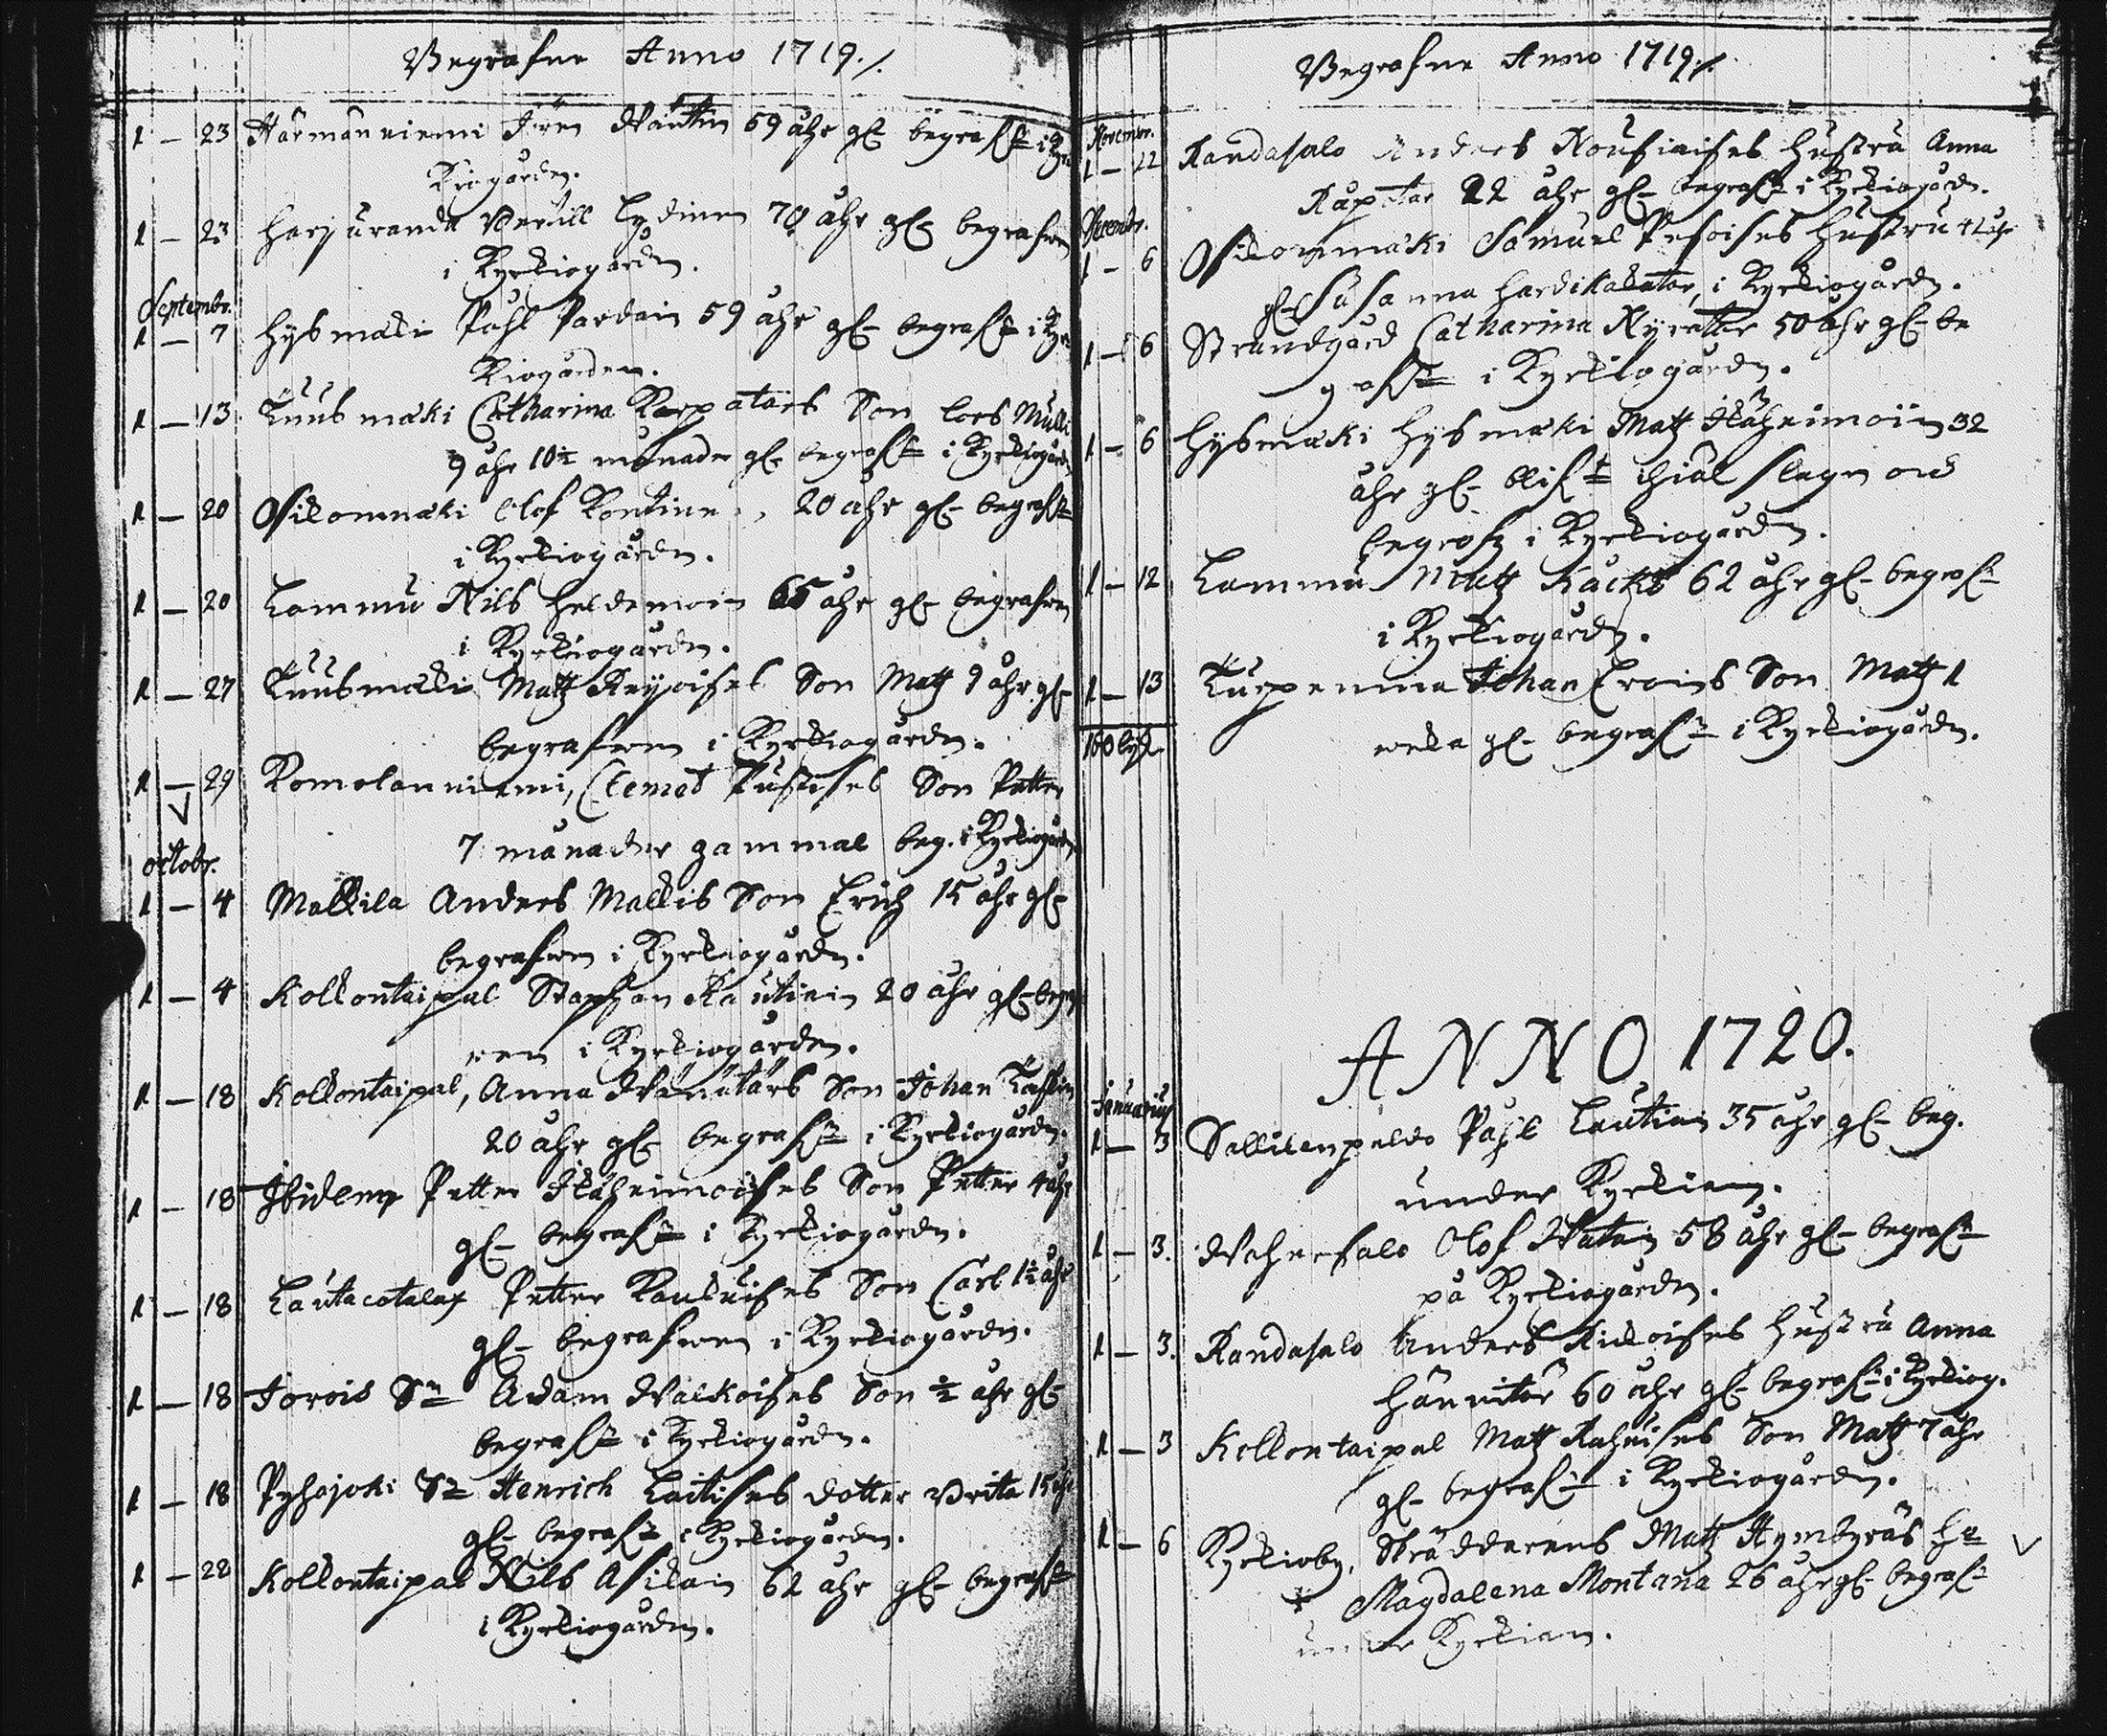 Begrafne Anno 1719 ./.
1 – 23 Härmänniemi Jören Wäntin 59 åhr gl. begrafn i Kyr
kiogården.
1 – 23 Harjuranda Bertill Lydinen 70 åhr gl. begrafwen
i Kyrkiogården.
Septembr.
1 – 7 Hysmäki Påhl Pardain 59 åhr gl. begrafn i Kyr
kiogården.
1 – 13 Kuusmäki Catharina Karpatars Son Lars Mulli
9 åhr 10½ månader gl. begrafn i Kyrkiogården
1 – 20 Osikonmäki Olof Kontinen, 20 åhr gl. begrafn
i Kyrkiogården.
1 – 20 Lammu Nils Heldemoin 65 åhr gl. begrafwen
i Kyrkiogården.
1 – 27 Kuusmäki Matz Reijoises Son Matz 9 åhr gl.
begrafwen i Kyrkiogården.
1 – 29 Komolanniemi, Clemet Pustises Son Petter
7 månader gammal beg. i Kyrkiogården
octobr.
1 – 4 Malkila Anders Malkis Son Erich 15 åhr gl.
begrafwen i Kyrkiogården.
1 – 4 Kolkontaipal Staphan Rautiain 20 åhr gl. begraf
wen i Kyrkiogården.
1 – 18 Kolkontaipal, Anna Wänätärs Son Johan
20 åhr gl. begrafn i Kyrkiogården.
1 – 18 Ibidem Petter Ikäheimoises Son Petter 4 åhr
gl. begrafn i Kyrkiogården.
1 – 18 Lautacotalax Petter Kaukuises Son Carl 1½ åhr
gl. begrafwen i Kyrkiogården.
1 – 18 Jorois Sn Adam Walkoises Son ½ åhr gl.
begrafn i Kyrkiogården.
1 – 18 Pyhäjoki Sn Henrich Laitises dotter Brita 15 åhr
gl. begrafn i Kyrkiogården.
1 – 22 Kolkontaipal Nils Asikain 62 åhr gl. begrafn
i Kyrkiogården.
Begrafne Anno 1719 ./.
Novembr.
1 – 22 Randasalo Anders Nousiaises Hustru Anna
22 åhr gl. begrafn i Kyrkiogården.
Decembr.
1 – 6 Osikonmäki Samuel Pesoises Hustru 42 åhr
gl. Susanna Hardikakatar, i Kyrkiogården.
1 – 6 Strandgård Catharina 50 åhr gl. be
grafn i Kyrkiogården.
1 – 6 Hysmäki Hysmäki Matz Ikäheimoin 32
åhr gl. blifn ihiäl slagen och
begrafn i Kyrkiogården.
1 – 12 Lammu Matz Käcki 62 åhr gl. begrafn
i Kyrkiogården.
1 – 13 Kurpenma Johan Eroins Son Matz 1
weka gl. begrafn i Kyrkiogården.
100 lijk.
ANNO 1720.
Januarius
1 – 3 Sallilanpelto Påhl Lautiain 35 åhr gl. beg.
under Kyrkian.
1 – 3. Wehersalo Olof Watain 58 åhr gl. begrafn
på Kyrkiogården.
1 – 3. Randasalo Anders Kickoises Hustru Anna
60 åhr gl. begrafn i Kyrkiog.
1 – 3 Kolkontaipal Matz Rahuises Son Matz 7 åhr
gl. begrafn i Kyrkiogården.
1 – 6 Kyrkioby, Skräddarens Matz Hymbyräs Hu
Magdalena Montana 26 åhr gl. begrafn
under Kyrkian.